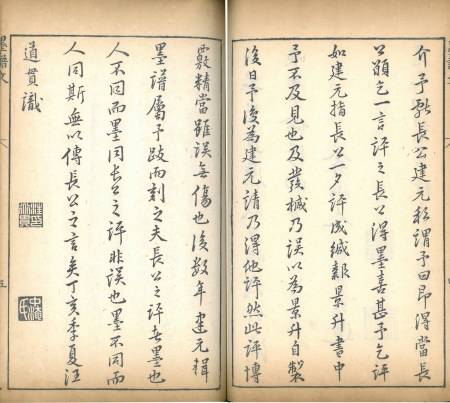 介予獻長公建元私謂予曰即得當長
公願乞一言評之長公得墨喜甚予乞評
如建元指長公一夕評成緘報景升書中
予不及見也及發椷乃誤以為景升自製
後日予復為建元請乃得他評然此評博
覈精當雖誤無傷也後數年建元輯
墨譜屬予跋而刻之夫長公之評在墨也
人不同而墨同長公之評非誤也墨不同而
人同斯無以傳長公之言矣丁亥季夏汪
道貫識
墨譜
五